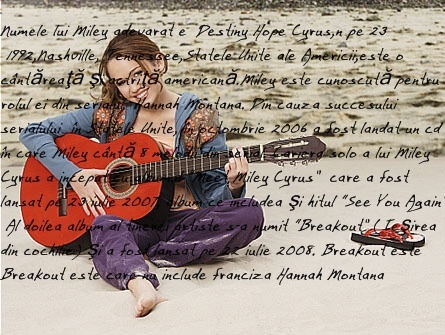 Numele lui Miley adevarat e Destiny Hope Cyrus,n pe 23
1992,Nashville, Tennessee,Statele Unite ale Americii;este o
cântăreaţă Şi actriţă americană.Miley este cunoscută pentru
rolul ei din serialul Hannah Montana. Din cauza succesului
serialului, in Statele Unite,in octombrie 2006 a fost landat un cd
în care Miley cântă 8 melodii cariera solo a lui Miley
Cyrus a inceput Miley Cyrus" care a fost
lansat pe 23 iulie 2007 album ce includea Şi hitul "See You Again
Al doilea album al tinerei artiste s-a numit "Breakout" ( IeŞirea
din cochilie) Şi a fost lansat pe 22 iulie 2008. Breakout este
Breakout este care nu include franciza Hannah Montana